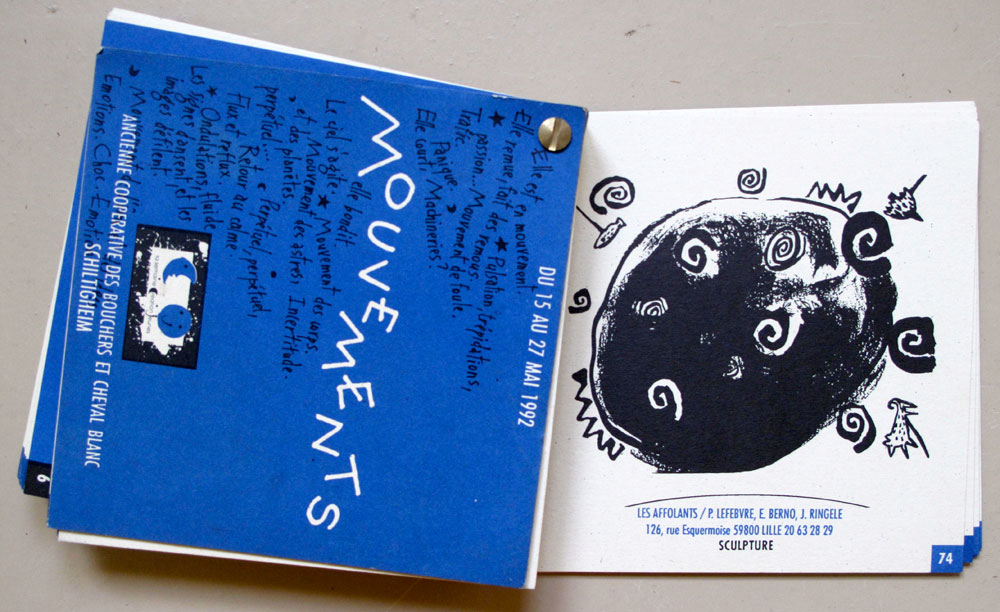 DU 15 AU 27 MAI 1992
Elle est
en mouvement.
Elle remue, fait des remous,
★ Pulsation, trépidations,
passion... Mouvement de foule.
Panique.
Elle court. Machineries ?
MOUVEMENTS
elle bondit
Le ciel s'agite ★ Mouvement des corps,
et Mouvement des astres,
et des planètes.
perpétuel... perpétuel,
Flux et reflux Retour du calme
★ Ondulations, fluide
Les signes dansent, et les
images défilent.
Emotions. Choc.
ANCIENNE COOPERATIVE DES BOUCHERS ET CHEVAL BLANC
SCHILTIGHEIM
6
LES AFFOLANTS / P. LEFEBVRE, E. BERNO, J. RINGELE
126, rue Esquermoise 59800 LILLE 20 63 28 29
SCULPTURE
74